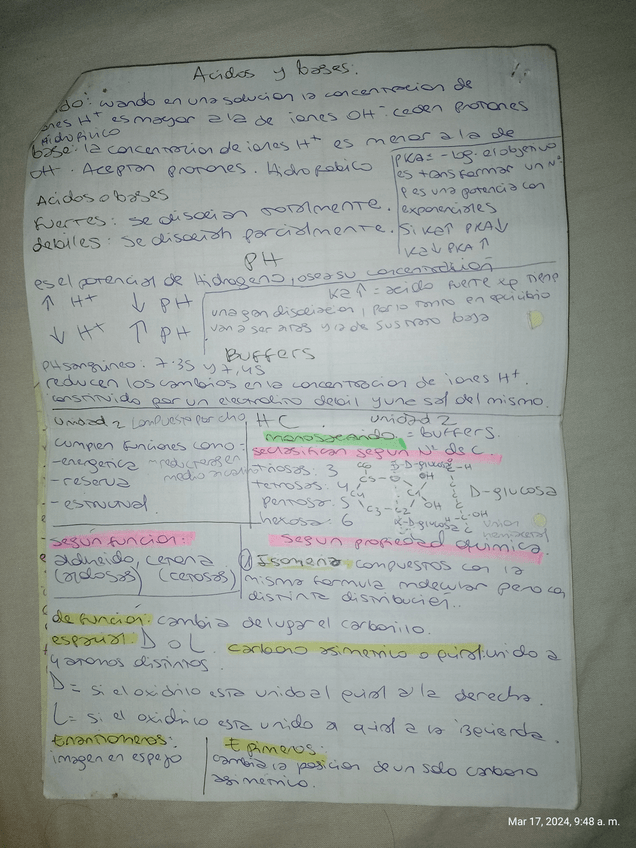 Acidos y bases.
ido: cuando en una solución la concentracion de
ones H⁺ es mayor a la de iones OH⁻. ceden protones
Hidrofilico
base: la concentracion de iones H⁺ es menor a la de
OH⁻. Aceptan protones. Hidrofobico
PKA = -log. el objetivo
es transformar un N°
P es una potencia con
exponenciales
Si Ka↑ PKA↓
Ka↓ PKA↑
Acidos o bases
Fuertes: se disocian totalmente.
debiles: se disocian parcialmente.
PH
es el potencial de Hidrogeno, osea su concentración
↑ H⁺ ↓ PH
↓ H⁺ ↑ PH
Ka↑ = acido fuerte xp tiene
una gan disociacion, por lo tanto en equilibio
van a ser altas y la de sustrato baja
Buffers
PH sanguineo: 7.35 y 7,45
reducen los cambios en la concentracion de iones H⁺.
constituido por un electrolito debil y una sal del mismo.
Unidad 2 compuesto por cho HC. unidad 2
cumplen funciones como:
-energetica -reductores en
medio
-reserva
-estructural
monosacarido = buffers.
se clasifican segun N° ds C.
triosas: 3
tetrosas: 4
pentosa: 5
hexosa: 6
D-glucosa
D-glucosa
D-glucosa
union
hemiacetal
según función:
aldheido, cetona
(aldosas) (cetosas)
Segun propiedad quimica.
① Isomeria compuestos con la
misma formula molecular pero con
distinta distribución..
de función: cambia de lugar el carbonilo.
espacial: D o L. carbono asimetrico o quiral: unido a
4 atomos distintos.
D = si el oxidrilo esta unido al quiral a la derecha.
L = si el oxidrilo esta unido a quiral a la izquierda.
Enantiomeros:
imagen en espejo
Epimeros:
cambia la posicion de un solo carbono
asimetrico.
Mar 17, 2024, 9:48 a. m.